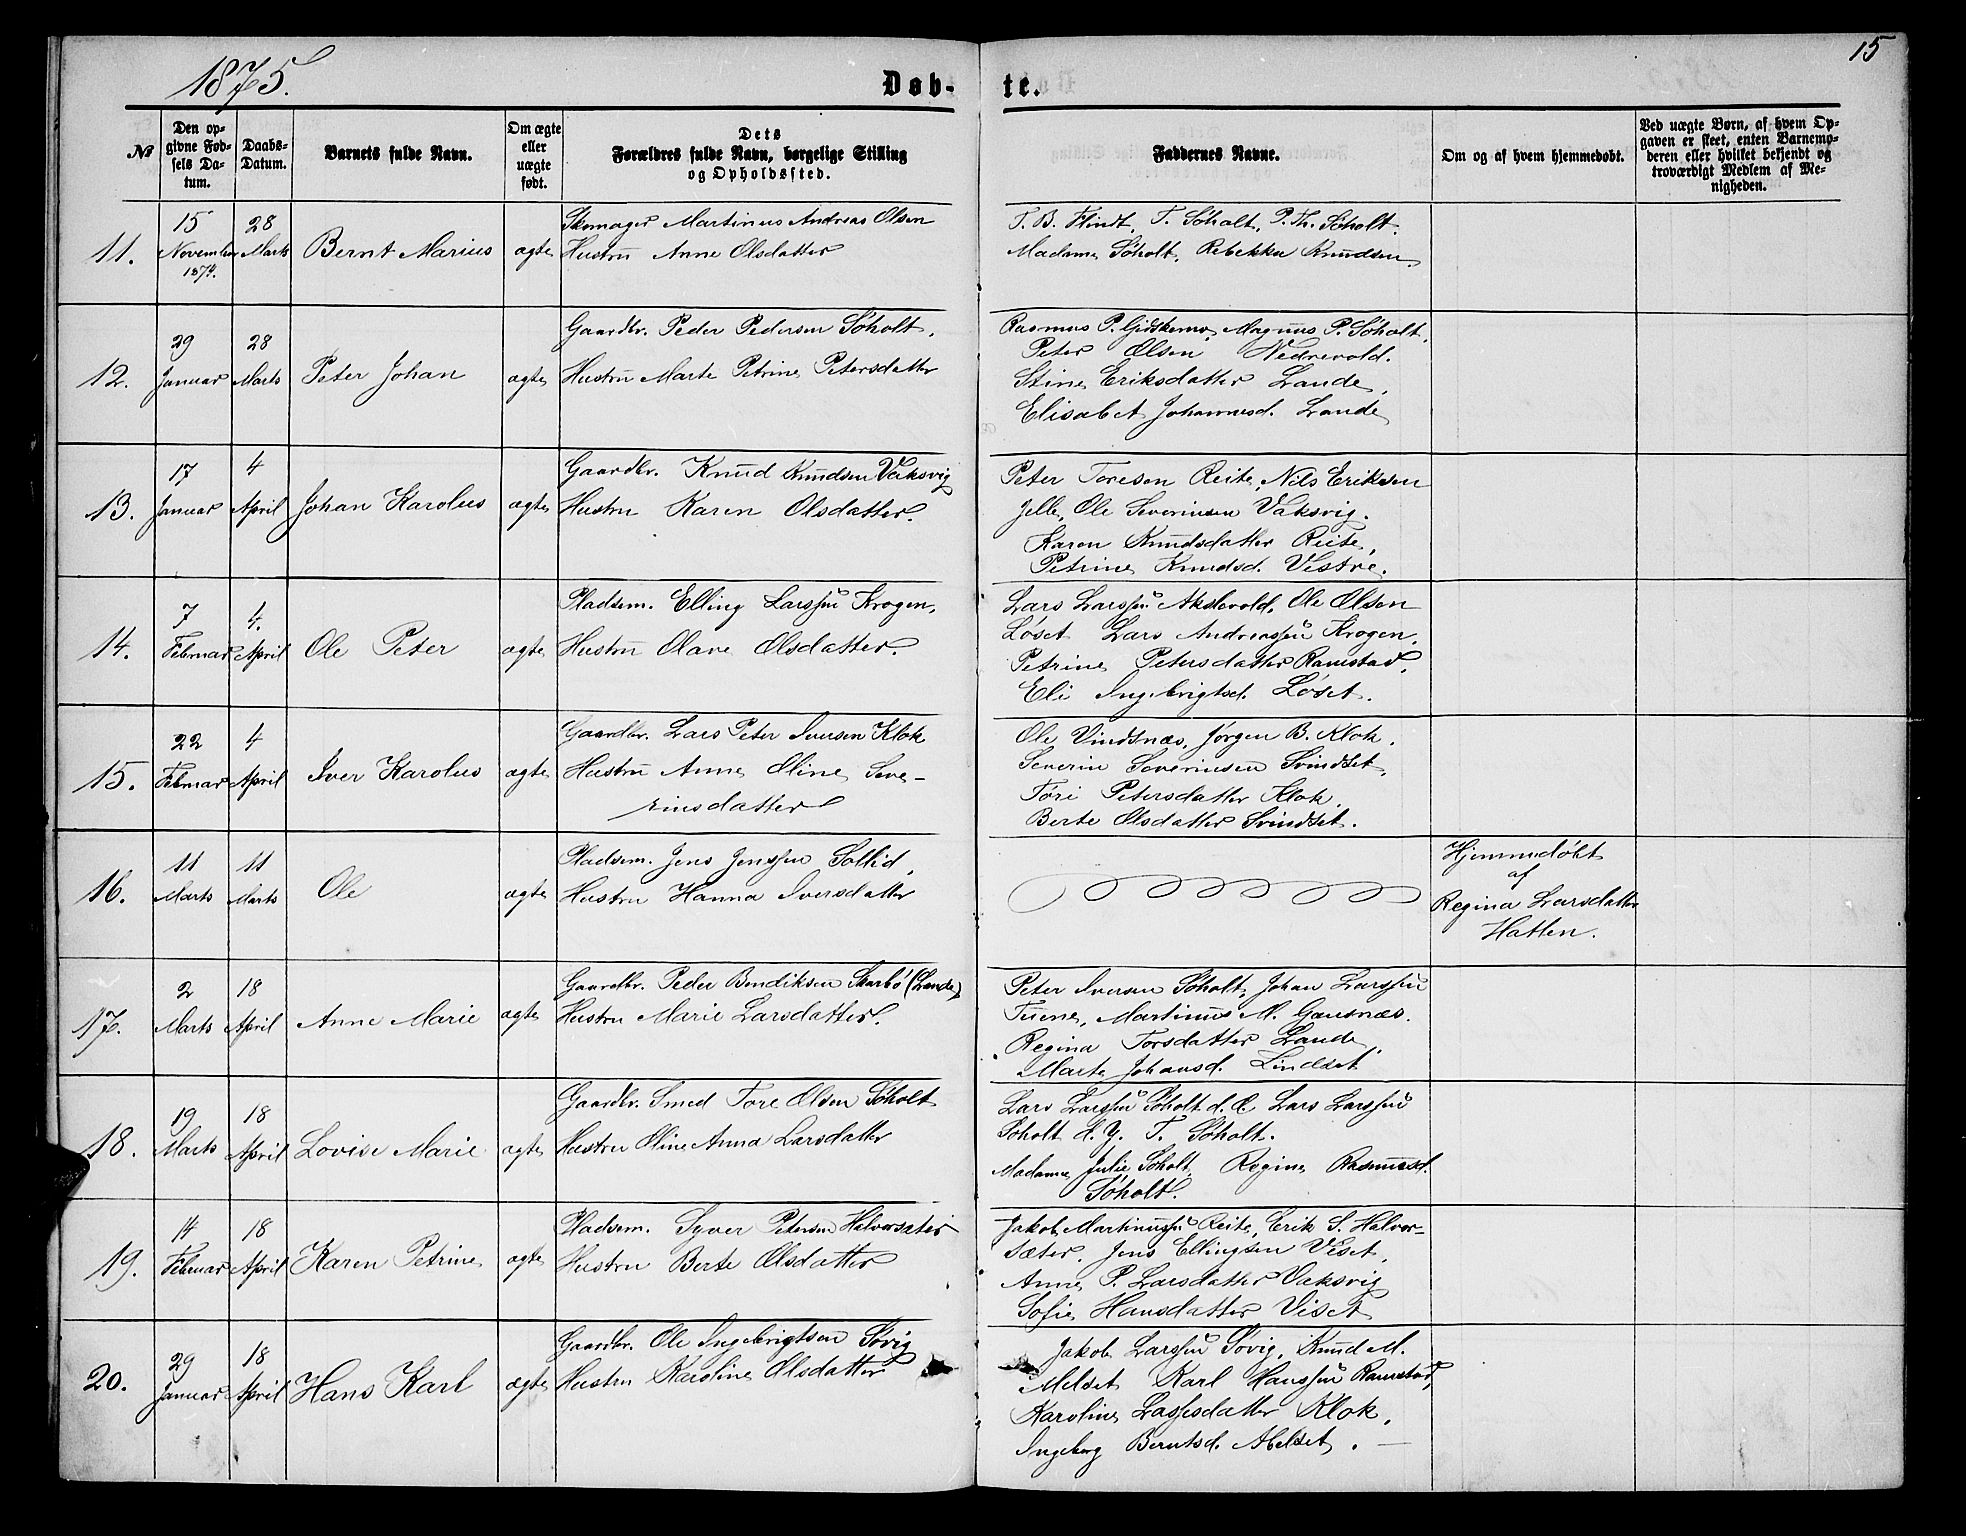 1875.
Døb-
te.
15
№
Den op-
givne Fød-
sels Da-
tum.
Daabs-
Datum.
Barnets fulde Navn.
Om ægte
eller
uægte
født.
Dets
Forældres fulde Navn, borgelige Stilling
og Opholdssted.
Faddernes Navne.
Om og af hvem hjemmedøbt.
Ved uægte Børn, af hvem Op-
gaven er skeet, enten Barnemo-
deren eller hvilket bekjendt og
troværdigt Medlem af Me-
nigheden.
11.
15
November
1874.
28
Marts
Bernt Marius
ægte
Skomager Martinus Andreas Olsen
Hustru Anne Olsdatter
T. B. Flindt, T. Søholt, P. Th. Søholt.
Madame Søholt, Rebekka Knudsen
12.
29
Januar
28
Marts
Peter Johan
ægte
Gaardbr. Peder Pedersen Søholt,
Hustru Marte Petrine Petersdatter
Rasmus P. Gidskemo, Magnus P. Søholt,
Peter Olsen Nedrevold.
Stine Eriksdatter Lande,
Elisabet Johannesd. Lande
13.
17
Januar
4
April
Johan Karolus
ægte
Gaardbr. Knud Knudsen Vaksvig
Hustru Karen Olsdatter.
Peter Toresen Reite, Nils Eriksen
Jelle, Ole Severinsen Vaksvig.
Karen Knudsdatter Reite,
Petrine Knudsd. Vestre.
14.
7
Februar
4.
April
Ole Peter
ægte
Pladsem. Elling Larssen Krogen,
Hustru Olave Olsdatter.
Lars Larssen Akslevold, Ole Olsen
Løset Lars Andreassen Krogen,
Petrine Petersdatter Ramstad,
Eli Ingebrigtsd. Løset.
15.
22
Februar
4
April
Iver Karolus
ægte
Gaardbr. Lars Peter Iversen Klok
Hustru Anne Oline Seve-
rinsdatter
Ole Vindsnæs, Jørgen B. Klok,
Severin Severinsen Svindset,
Töri Petersdatter Klok,
Berte Olsdatter Svindset.
16.
11
Marts
11
Marts
Ole
ægte
Pladsem. Jens Jenssen Sollid,
Hustru Hanna Iversdatter
Hjemmedøbt
af
Regina Larsdatter
Hatlen.
17.
2
Marts
18
April
Anne Marie
ægte
Gaardbr. Peder Bendiksen Skarbö (Lande)
Hustru Marie Larsdatter.
Peter Iversen Søholt, Johan Larssen
Tuene, Martinus M. Gausnæs.
Regina Torsdatter Lande,
Marte Johansd. Lindset
18.
19
Marts
18
April
Lovise Marie
ægte
Gaardbr. Smed Tore Olsen Søholt
Hustru Oline Anna Larsdatter
Lars Larssen Søholt d. Æ. Lars Larssen
Søholt d. Y. T. Søholt.
Madame Julie Søholt, Regine Rasmusd.
Søholt.
19.
14
Februar
18
April
Karen Petrine
ægte
Pladsem. Syver Petersen Halvorsæter
Hustru Berte Olsdatter
Jakob Martinussen Reite, Erik S. Halvor-
sæter, Jens Ellingsen Viset,
Anne P. Larsdatter Vaksvig
Sofie Hansdatter Viset
20.
29
Januar
18
April
Hans Karl
ægte
Gaardbr. Ole Ingebrigtsen Søvig
Hustru Karoline Olsdatter
Jakob Larssen Søvig, Knud M.
Melset Karl Hanssen Ramstad,
Karoline Lassesdatter Klok,
Ingeborg Berntsd. Melset.